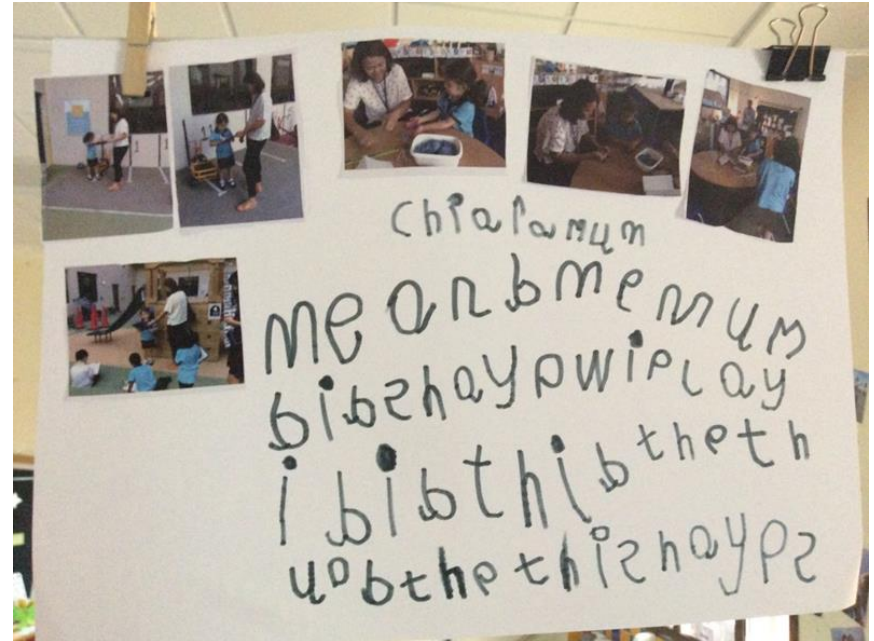 chiaramum
me anb me mum
bibshaypwiplay
i bibthibtheth
uobthethishayps